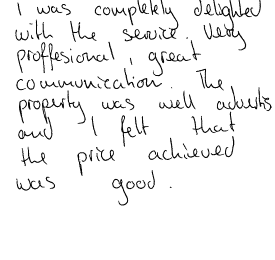 I was completely delighted
with the service. Very
proffesional, great
communication. The
property was well advertis
and I felt that
the price achieved
was good.